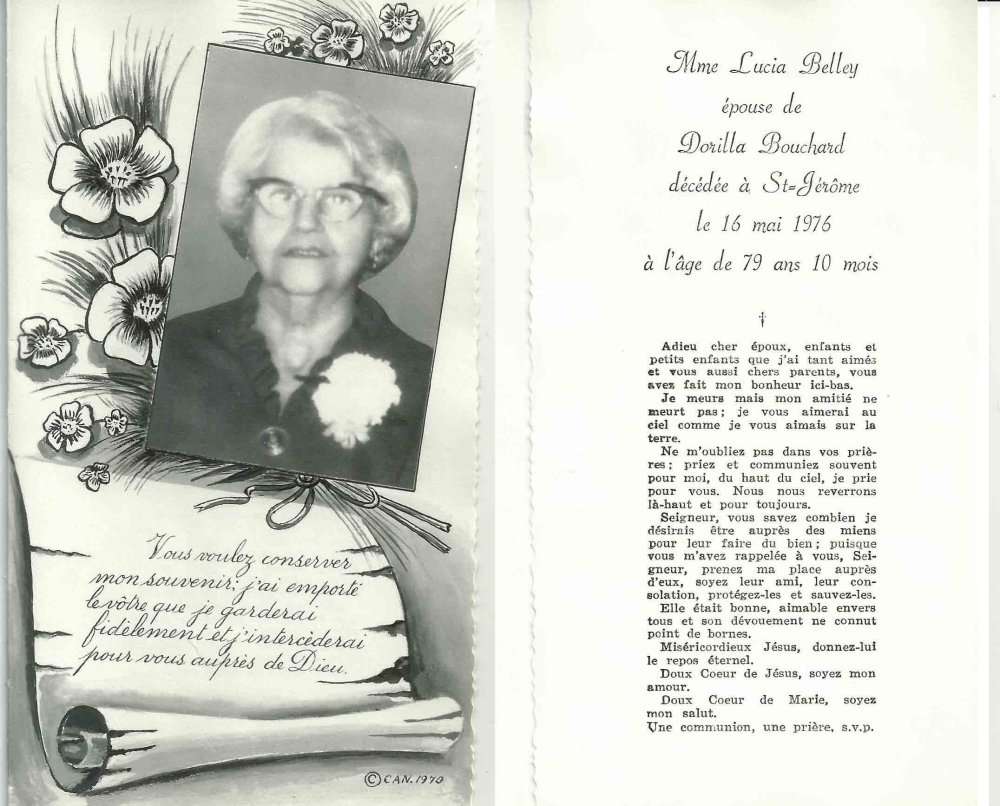 Vous voulez conserver
mon souvenir; j'ai emporté
le vôtre que je garderai
fidèlement et j'intercèderai
pour vous auprès de Dieu.
©CAN.1970
Mme Lucia Belley
épouse de
Dorilla Bouchard
décédée à St-Jérôme
le 16 mai 1976
à l'âge de 79 ans 10 mois
†
Adieu cher époux, enfants et
petits enfants que j'ai tant aimés
et vous aussi chers parents, vous
avez fait mon bonheur ici-bas.
Je meurs mais mon amitié ne
meurt pas; je vous aimerai au
ciel comme je vous aimais sur la
terre.
Ne m'oubliez pas dans vos priè-
res; priez et communiez souvent
pour moi, du haut du ciel, je prie
pour vous. Nous nous reverrons
là-haut et pour toujours.
Seigneur, vous savez combien je
désirais être auprès des miens
pour leur faire du bien; puisque
vous m'avez rappelée à vous, Sei-
gneur, prenez ma place auprès
d'eux, soyez leur ami, leur con-
solation, protégez-les et sauvez-les.
Elle était bonne, aimable envers
tous et son dévouement ne connut
point de bornes.
Miséricordieux Jésus, donnez-lui
le repos éternel.
Doux Coeur de Jésus, soyez mon
amour.
Doux Coeur de Marie, soyez
mon salut.
Une communion, une prière, s.v.p.